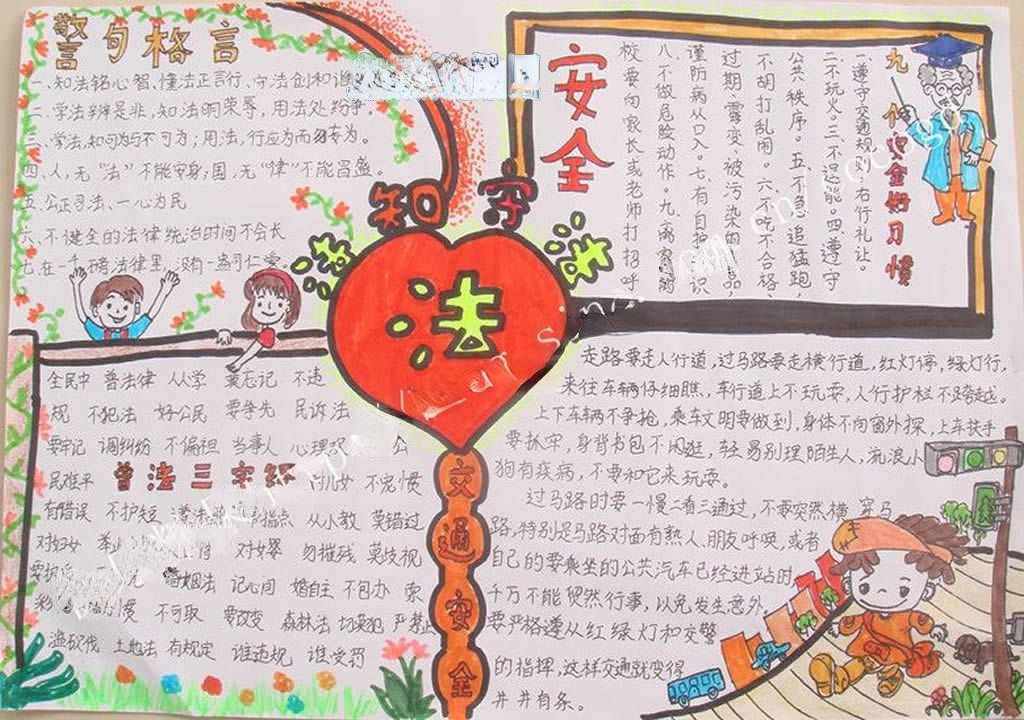 警句格言
一、知法铭心智、懂法正言行、守法创和谐
二、学法辨是非，知法明荣辱，用法处纷争。
三、学法，知可为与不可为；用法，行应为而勿妄为。
四、人，无“法”不能安身；国，无“律”不能昌盛。
五、公正司法、一心为民
六、不健全的法律统治时间不会长
七、在一千磅法律里，没有一盎司仁爱
学知守法
法
安全
九个安全好习惯
一遵守交通规则，右行礼让。
二不玩火。三不逞能。四遵守
公共秩序。五不急追猛跑，
不胡打乱闹。六不吃不合格、
过期、霉变、被污染的食品，
谨防病从口入。七有自护意识
八、不做危险动作。九、离家离
校要向家长或老师打招呼
全民中 普法律 从人学 莫忘记 不违
规 不犯法 好公民 要争先 民诉法
要牢记 调纠纷 不偏袒 当事人 心理服 公
民难平
普法三字经
有儿女 不宠惯
有错误 不护短 指点 从小教 莫错过
对妇女 对女婴 勿摧残 莫歧视
婚姻法 记心间 婚自主 不包办 索
不可取 要改变 森林法 切莫犯 严禁止
滥砍伐 土地法 有规定 谁违规 谁受罚
交通安全
走路要走人行道，过马路要走横行道，红灯停，绿灯行，
来往车辆仔细瞧，车行道上不玩耍，人行护栏不跨越。
上下车辆不争抢，乘车文明要做到，身体不向窗外探，上车扶手
要抓牢，身背书包不闲逛，轻易别理陌生人，流浪小
狗有疾病，不要和它来玩耍。
过马路时要一慢二看三通过，不要突然横穿马
路，特别是马路对面有熟人、朋友呼唤，或者
自己的要乘坐的公共汽车已经进站时
千万不能贸然行事，以免发生意外。
要严格遵从红绿灯和交警
的指挥，这样交通就变得
井井有条。